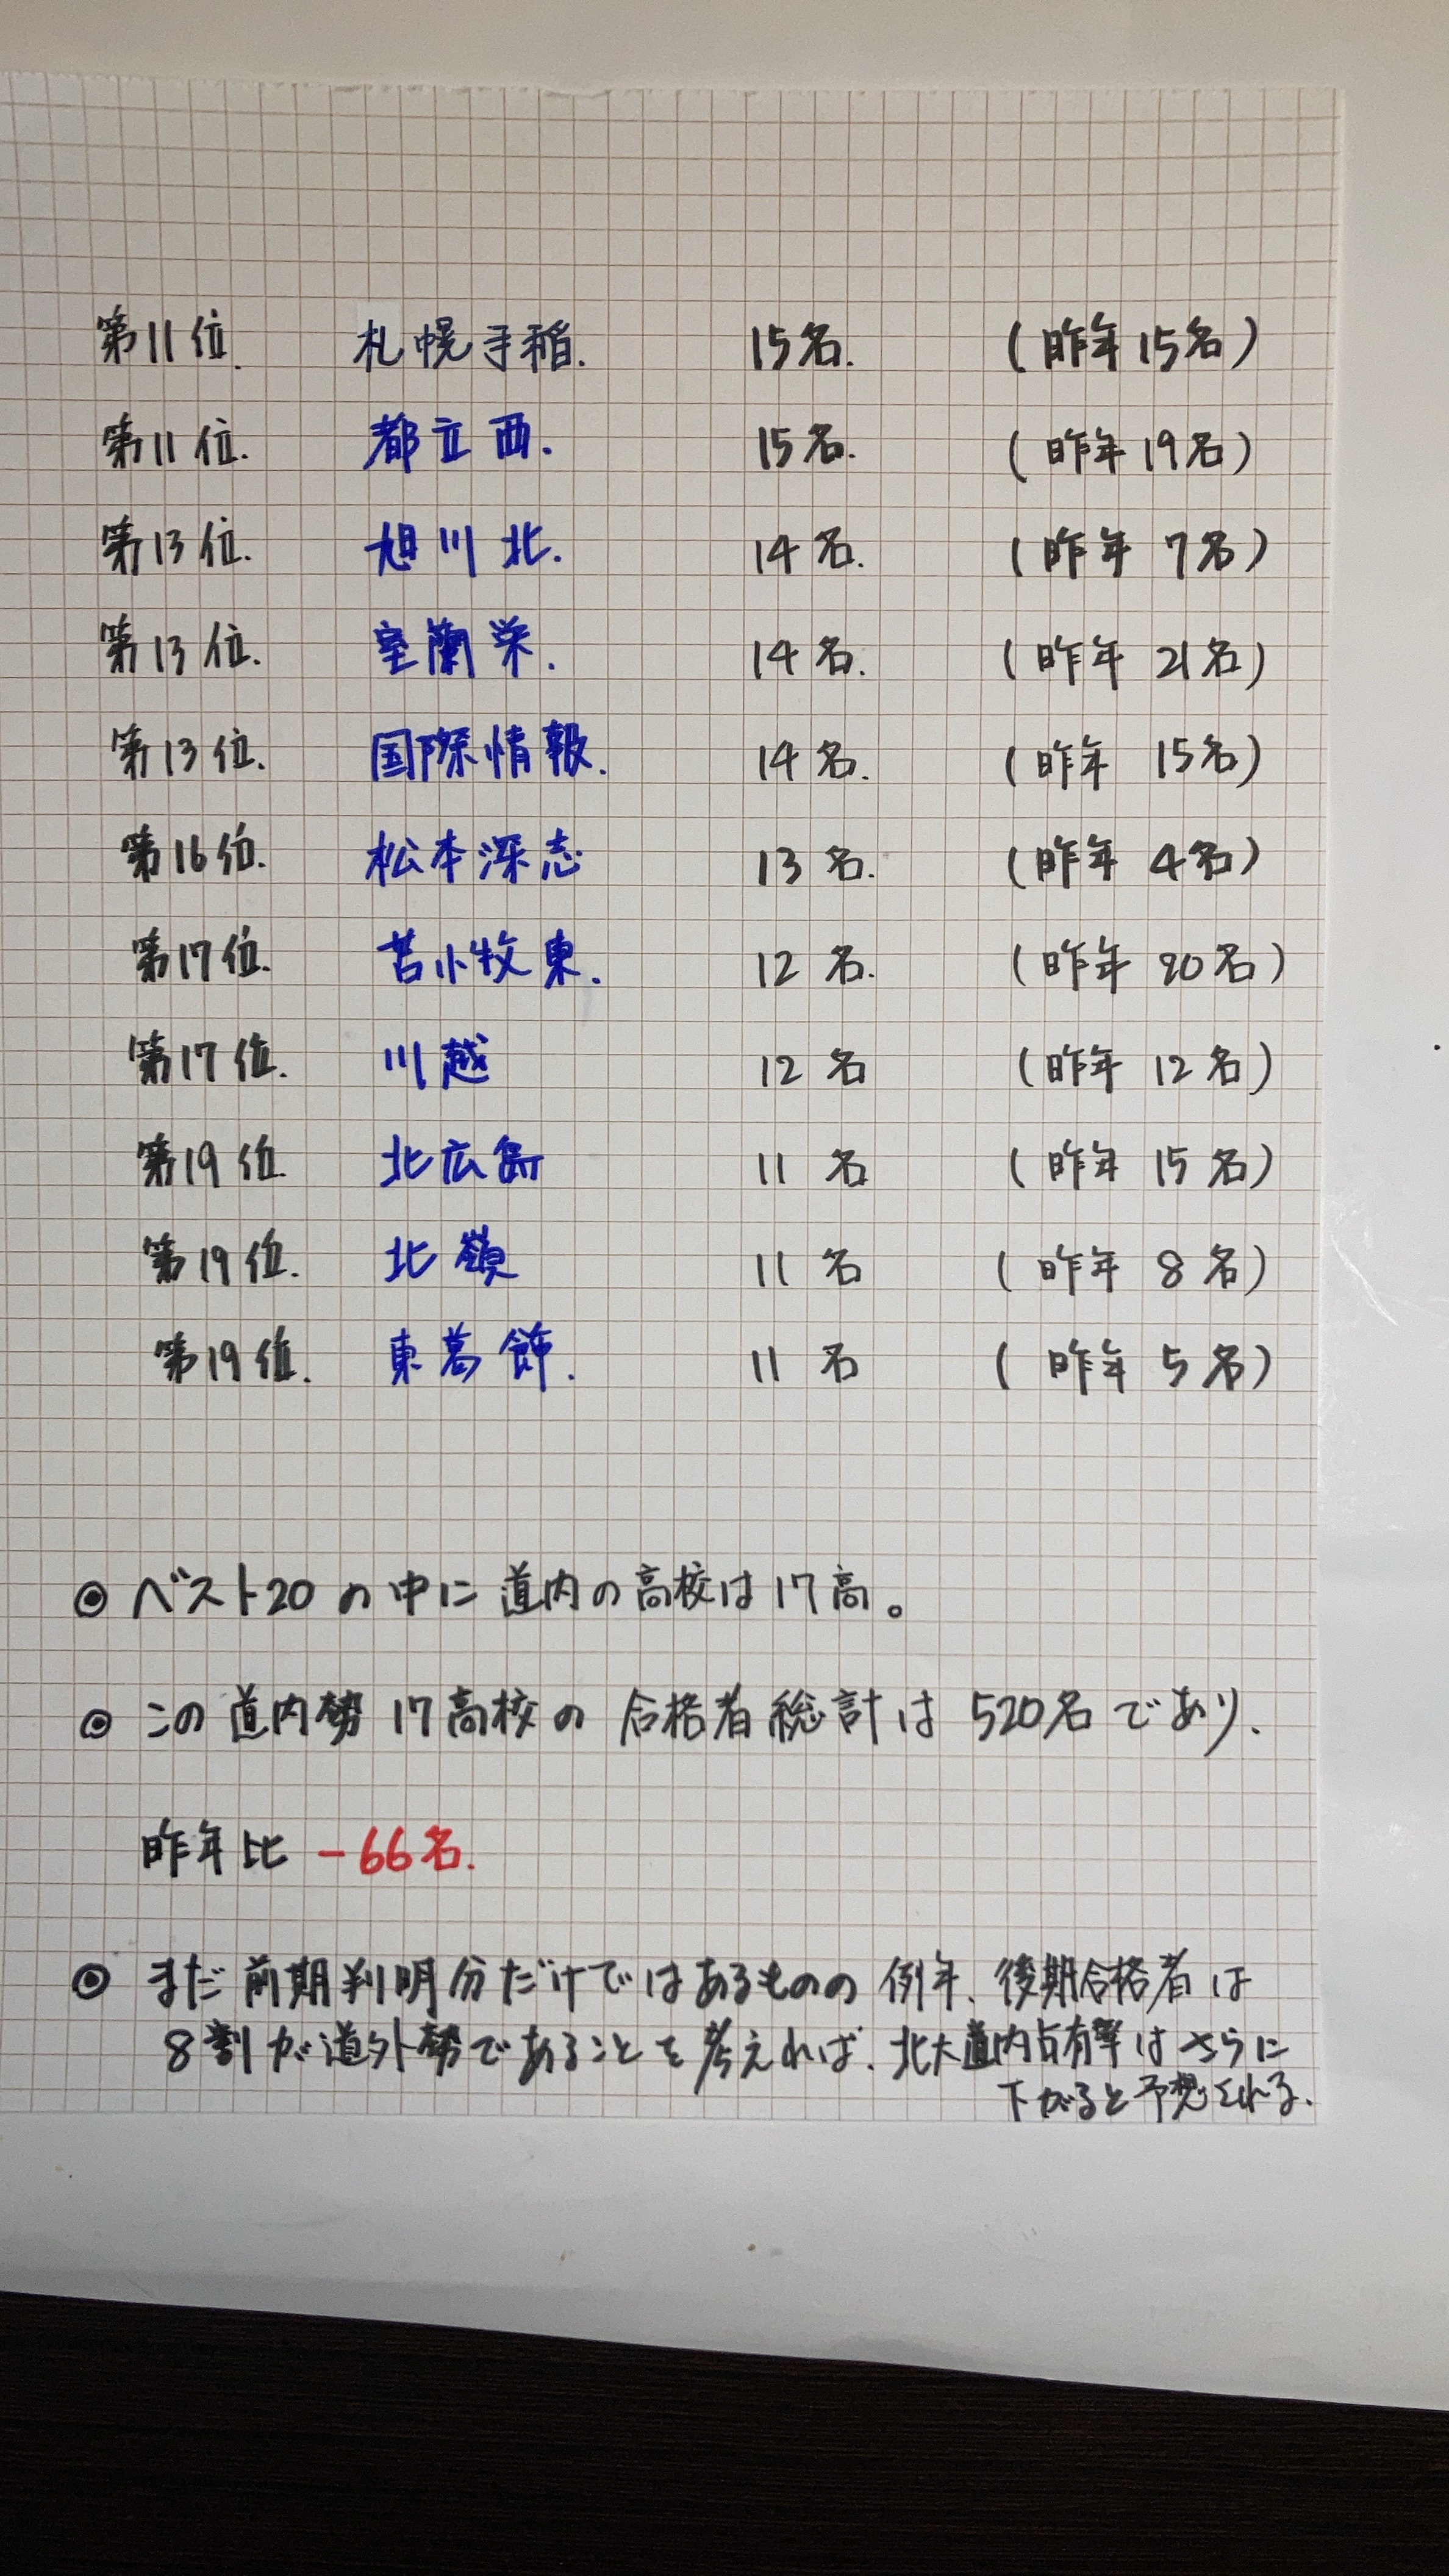 第11位. 札幌手稲. 15名. (昨年15名)
第11位. 都立西. 15名. (昨年19名)
第13位. 旭川北. 14名. (昨年 7名)
第13位. 室蘭栄. 14名. (昨年 21名)
第13位. 国際情報. 14名. (昨年 15名)
第16位. 松本深志 13名. (昨年 4名)
第17位. 苫小牧東. 12名. (昨年 20名)
第17位. 川越 12名 (昨年 12名)
第19位. 北広島 11名 (昨年 15名)
第19位. 北嶺 11名 (昨年 8名)
第19位. 東葛飾. 11名 (昨年 5名)
◎ ベスト20の中に道内の高校は17高。
◎ この道内勢17高校の合格者総計は520名であり、
昨年比 -66名.
◎ まだ前期判明分だけではあるものの例年、後期合格者は
8割が道外勢であることを考えれば、北大道内占有率はさらに
下がると予想される.